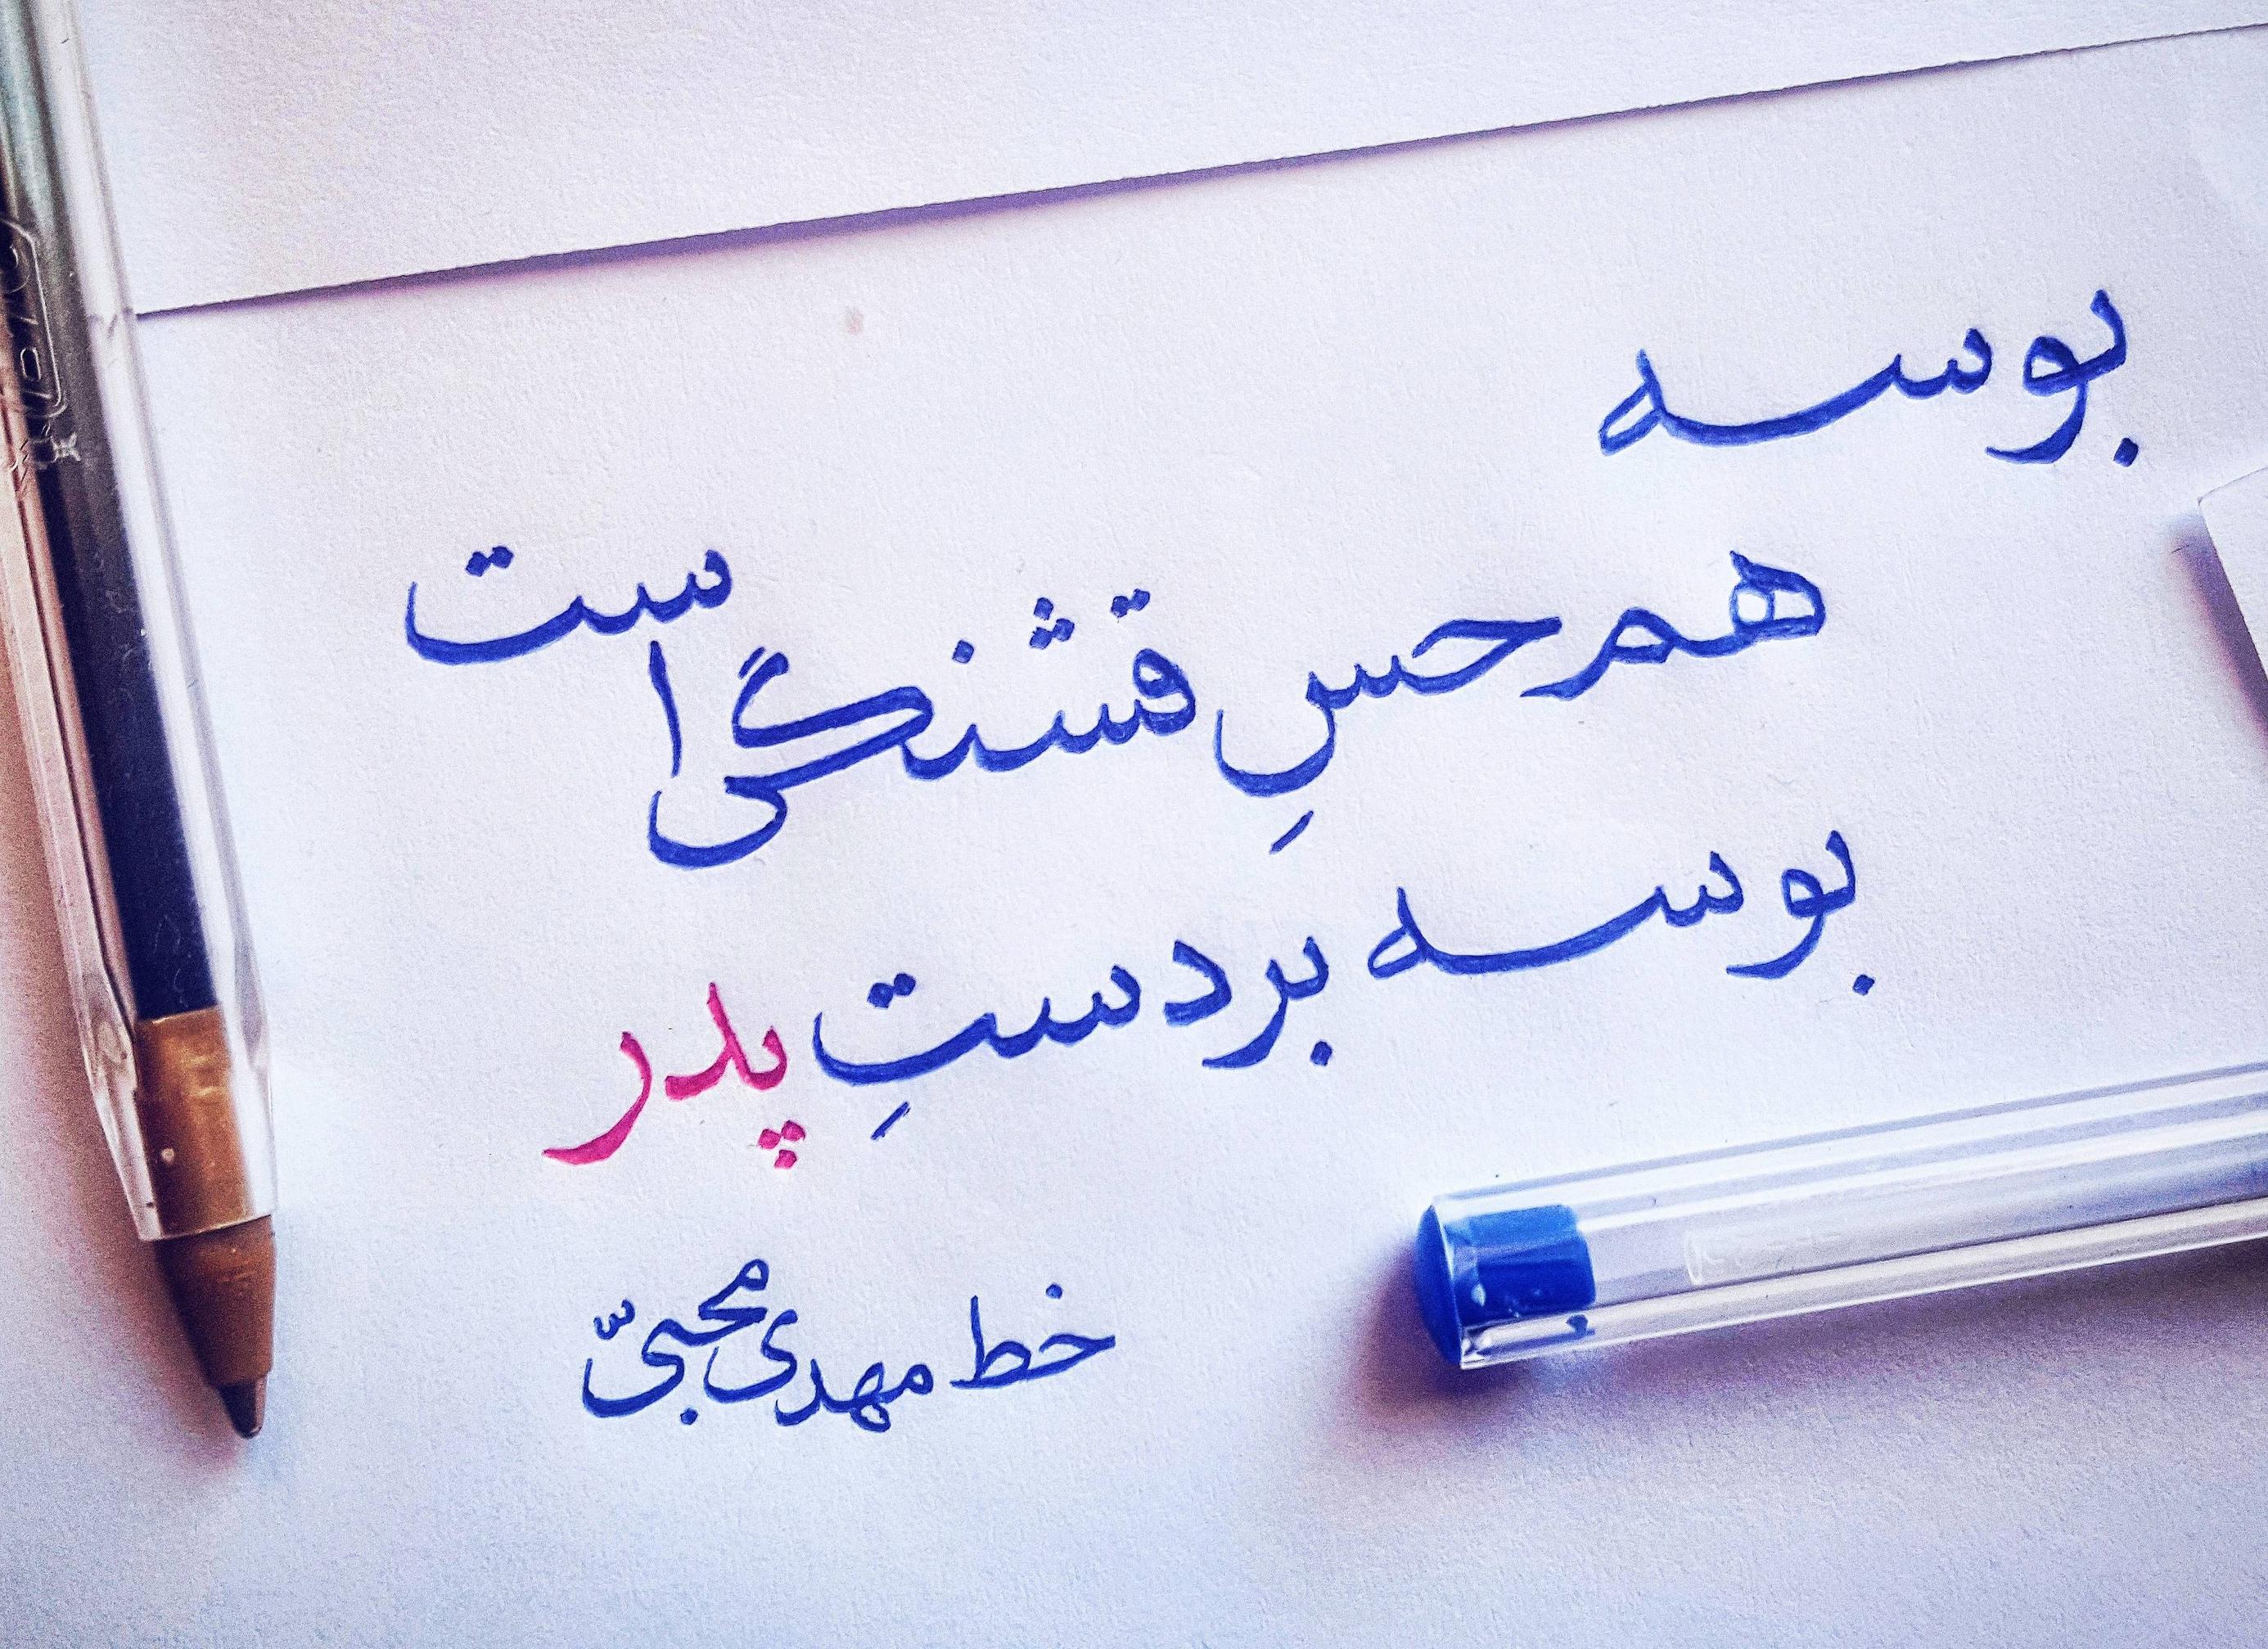 بوسه
هم حسِ قشنگی است
بوسه بر دستِ پدر
خط مهدی محبیّ